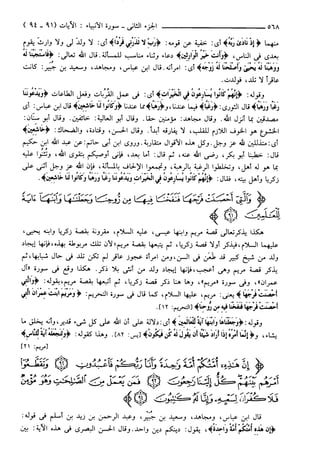 ٥٦٨ الجزء الثانى - سورة الأنبياء : الآيات (٩١ - ٩٤)
منهما ﴿إِذْ نَادَىٰ رَبَّهُ﴾ أى: خفية عن قومه: ﴿رَبِّ لَا تَذَرْنِي فَرْدًا﴾ أى: لا ولد لى ولا وارث يقوم
بعدى فى الناس، ﴿وَأَنتَ خَيْرُ الْوَارِثِينَ﴾ دعاء وثناء مناسب للمسألة. قال الله تعالى: ﴿فَاسْتَجَبْنَا لَهُ
وَوَهَبْنَا لَهُ يَحْيَىٰ وَأَصْلَحْنَا لَهُ زَوْجَهُ﴾ أى: امرأته. قال ابن عباس، ومجاهد، وسعيد بن جبير: كانت
عاقرا لا تلد، فولدت.
وقوله: ﴿إِنَّهُمْ كَانُوا يُسَارِعُونَ فِي الْخَيْرَاتِ﴾ أى: فى عمل القُرُبات وفعل الطاعات ﴿وَيَدْعُونَنَا
رَغَبًا وَرَهَبًا﴾ قال الثورى: ﴿رَغَبًا﴾ فيما عندنا، و﴿رَهَبًا﴾ مما عندنا ﴿وَكَانُوا لَنَا خَاشِعِينَ﴾ قال ابن عباس: أى
مصدقين بما أنزل الله. وقال مجاهد: مؤمنين حقا. وقال أبو العالية: خائفين. وقال أبو سنان:
الخشوع هو الخوف اللازم للقلب، لا يفارقه أبدا. وقال الحسن، وقتادة، والضحاك: ﴿خَاشِعِينَ﴾
أى: متذللين لله عز وجل. وكل هذه الأقوال متقاربة. وروى ابن أبى حاتم: عن عبد الله ابن حكيم
قال: خطبنا أبو بكر، رضى الله عنه، ثم قال: أما بعد، فإنى أوصيكم بتقوى الله، وتثنوا عليه
بما هو له أهل، وتخلطوا الرغبة بالرهبة، وتجمعوا الإلحاف بالمسألة، فإن الله عز وجل أثنى على
زكريا وأهل بيته، فقال: ﴿إِنَّهُمْ كَانُوا يُسَارِعُونَ فِي الْخَيْرَاتِ وَيَدْعُونَنَا رَغَبًا وَرَهَبًا وَكَانُوا لَنَا خَاشِعِينَ﴾.
وَالَّتِي أَحْصَنَتْ فَرْجَهَا فَنَفَخْنَا فِيهَا مِن رُّوحِنَا وَجَعَلْنَاهَا وَابْنَهَا آيَةً لِّلْعَالَمِينَ
﴿٩١﴾
هكذا يذكر تعالى قصة مريم وابنها عيسى، عليه السلام، مقرونة بقصة زكريا وابنه يحيى،
عليهما السلام، فيذكر أولا قصة زكريا، ثم يتبعها بقصة مريم؛ لأن تلك مربوطة بهذه، فإنها إيجاد
ولد من شيخ كبير قد طَعَن فى السن، ومن امرأة عجوز عاقر لم تكن تلد فى حال شبابها، ثم
يذكر قصة مريم وهى أعجب، فإنها إيجاد ولد من أنثى بلا ذكر. هكذا وقع فى سورة «آل
عمران»، وفى سورة «مريم»، وها هنا ذكر قصة زكريا، ثم أتبعها بقصة مريم، بقوله: ﴿وَالَّتِي
أَحْصَنَتْ فَرْجَهَا﴾ يعنى: مريم، عليها السلام، كما قال فى سورة التحريم: ﴿وَمَرْيَمَ ابْنَتَ عِمْرَانَ الَّتِي
أَحْصَنَتْ فَرْجَهَا فَنَفَخْنَا فِيهِ مِن رُّوحِنَا﴾ [التحريم: ١٢].
وقوله: ﴿وَجَعَلْنَاهَا وَابْنَهَا آيَةً لِّلْعَالَمِينَ﴾ أى: دلالة على أن الله على كل شىء قدير، وأنه يخلق ما
يشاء، و﴿إِنَّمَا أَمْرُهُ إِذَا أَرَادَ شَيْئًا أَن يَقُولَ لَهُ كُن فَيَكُونُ﴾ [يس: ٨٢]. وهذا كقوله: ﴿وَلِنَجْعَلَهُ آيَةً لِّلنَّاسِ﴾
[مريم: ٢١]
إِنَّ هَٰذِهِ أُمَّتُكُمْ أُمَّةً وَاحِدَةً وَأَنَا رَبُّكُمْ فَاعْبُدُونِ ﴿٩٢﴾ وَتَقَطَّعُوا
أَمْرَهُم بَيْنَهُمْ كُلٌّ إِلَيْنَا رَاجِعُونَ ﴿٩٣﴾ فَمَن يَعْمَلْ مِنَ الصَّالِحَاتِ وَهُوَ مُؤْمِنٌ
فَلَا كُفْرَانَ لِسَعْيِهِ وَإِنَّا لَهُ كَاتِبُونَ ﴿٩٤﴾
قال ابن عباس، ومجاهد، وسعيد بن جُبَيْر، وعبد الرحمن بن زيد بن أسلم فى قوله:
﴿إِنَّ هَٰذِهِ أُمَّتُكُمْ أُمَّةً وَاحِدَةً﴾، يقول: دينكم دين واحد. وقال الحسن البصرى فى هذه الآية: بين